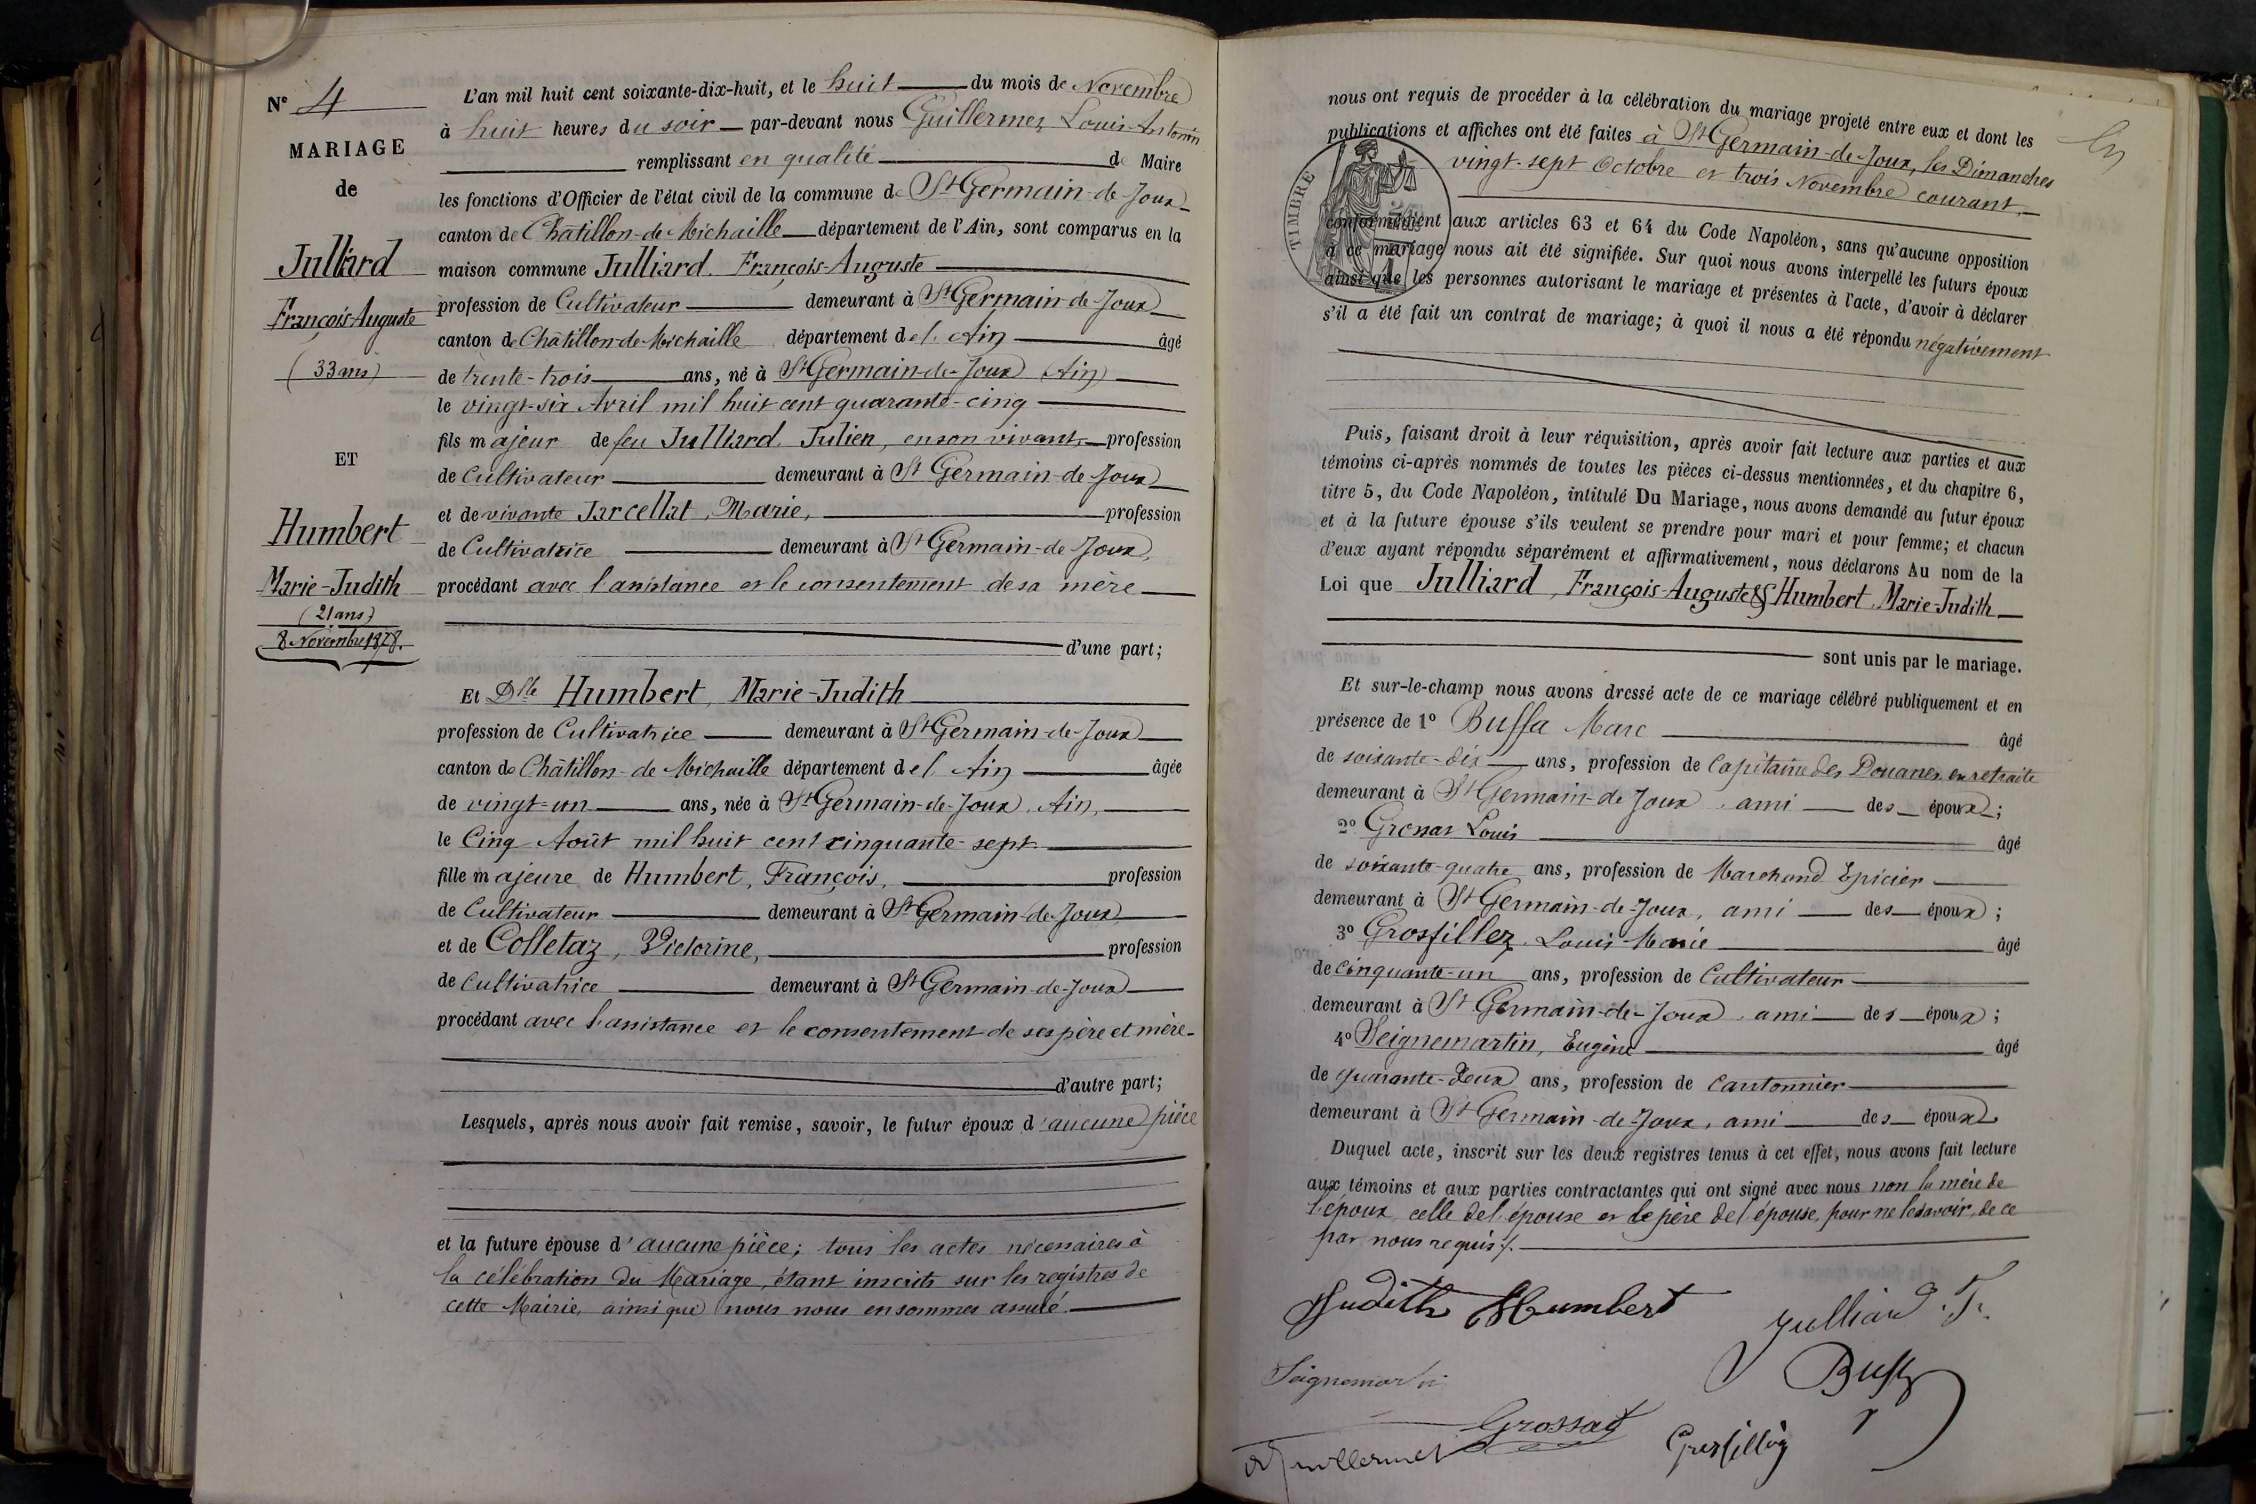 N° 4
MARIAGE
de
Julliard
François-Auguste
(33 ans)
ET
Humbert
Marie-Judith
(21 ans)
8 Novembre 1878.
L'an mil huit cent soixante-dix-huit, et le huit du mois de Novembre
à huit heures du soir par-devant nous Guillermet Louis-Antonin
remplissant en qualité de Maire
les fonctions d'Officier de l'état civil de la commune de St Germain-de-Joux
canton de Châtillon-de-Michaille département de l'Ain, sont comparus en la
maison commune Julliard, François-Auguste
profession de Cultivateur demeurant à St Germain-de-Joux
canton de Châtillon-de-Michaille département de l'Ain âgé
de trente-trois ans, né à St Germain-de-Joux (Ain)
le vingt-six Avril mil huit cent quarante-cinq
fils majeur de feu Julliard, Julien, en son vivant, profession
de Cultivateur demeurant à St Germain-de-Joux
et de vivante Jarcellat, Marie, profession
de Cultivatrice demeurant à St Germain-de-Joux,
procédant avec l'assistance et le consentement de sa mère
d'une part;
Et Dlle Humbert, Marie-Judith
profession de Cultivatrice demeurant à St Germain-de-Joux
canton de Châtillon-de-Michaille département de l'Ain âgée
de vingt-un ans, née à St Germain-de-Joux, Ain,
le Cinq Août mil huit cent cinquante-sept
fille majeure de Humbert, François, profession
de Cultivateur demeurant à St Germain-de-Joux
et de Colletaz, Victorine, profession
de Cultivatrice demeurant à St Germain-de-Joux
procédant avec l'assistance et le consentement de ses père et mère
d'autre part;
Lesquels, après nous avoir fait remise, savoir, le futur époux d'aucune pièce
et la future épouse d'aucune pièce; tous les actes nécessaires à
la célébration du Mariage, étant inscrits sur les registres de
cette Mairie, ainsi que nous nous en sommes assuré.
nous ont requis de procéder à la célébration du mariage projeté entre eux et dont les
publications et affiches ont été faites à St Germain-de-Joux, les Dimanches
vingt-sept Octobre et trois Novembre courant,
TIMBRE
conformément aux articles 63 et 64 du Code Napoléon, sans qu'aucune opposition
à ce mariage nous ait été signifiée. Sur quoi nous avons interpellé les futurs époux
ainsi que les personnes autorisant le mariage et présentes à l'acte, d'avoir à déclarer
s'il a été fait un contrat de mariage; à quoi il nous a été répondu négativement
Puis, faisant droit à leur réquisition, après avoir fait lecture aux parties et aux
témoins ci-après nommés de toutes les pièces ci-dessus mentionnées, et du chapitre 6,
titre 5, du Code Napoléon, intitulé Du Mariage, nous avons demandé au futur époux
et à la future épouse s'ils veulent se prendre pour mari et pour femme; et chacun
d'eux ayant répondu séparément et affirmativement, nous déclarons Au nom de la
Loi que Julliard, François-Auguste & Humbert, Marie-Judith
sont unis par le mariage.
Et sur-le-champ nous avons dressé acte de ce mariage célébré publiquement et en
présence de 1° Buffa Marc âgé
de soixante-dix ans, profession de Capitaine des Douanes en retraite
demeurant à St Germain-de Joux, ami des époux;
2° Grossat Louis âgé
de soixante-quatre ans, profession de Marchand Epicier
demeurant à St Germain-de-Joux, ami des époux;
3° Grosfillez, Louis-Marie âgé
de cinquante-un ans, profession de Cultivateur
demeurant à St Germain-de-Joux, ami des époux;
4° Seignemartin, Eugène âgé
de quarante-deux ans, profession de Cantonnier
demeurant à St Germain-de-Joux, ami des époux
Duquel acte, inscrit sur les deux registres tenus à cet effet, nous avons fait lecture
aux témoins et aux parties contractantes qui ont signé avec nous non la mère de
l'époux, celle de l'épouse et le père de l'épouse, pour ne le savoir, de ce
par nous requis.
Judith Humbert
Julliard . F.
Seignemartin
Buffa
Grossat
Grosfillez
Guillermet